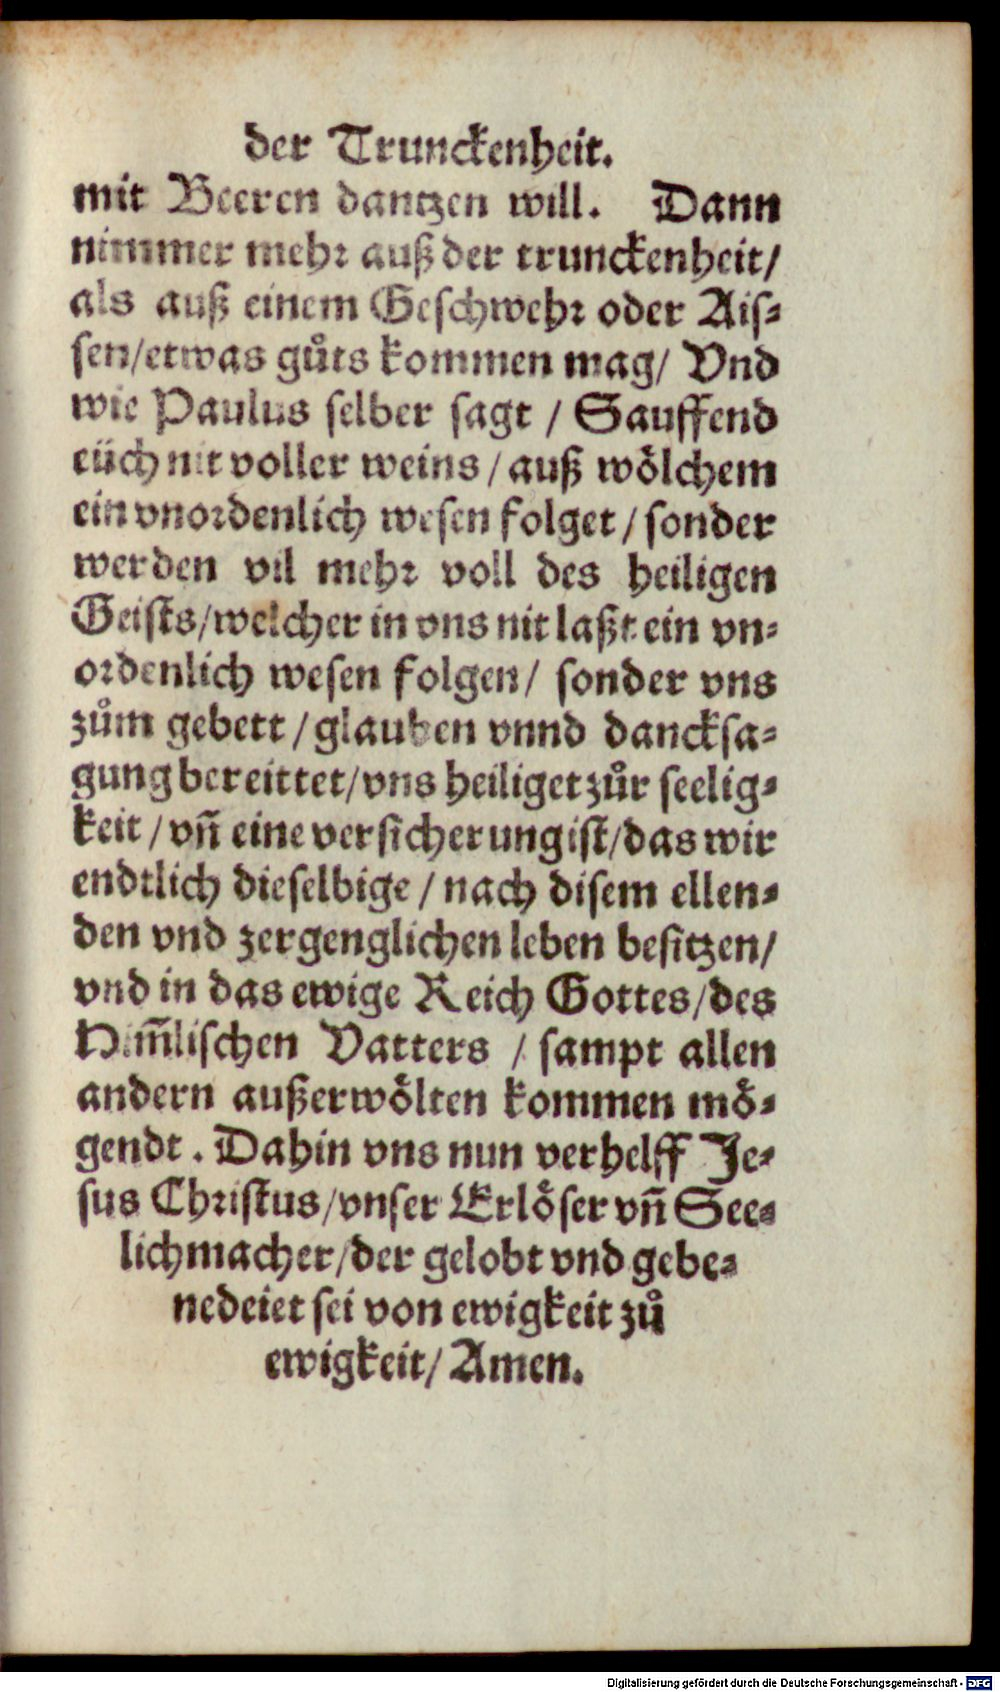 der Trunckenheit.
mit Beeren dantzen will. Dann
nimmer mehr auß der trunckenheit/
als auß einem Geschwehr oder Ais⸗
sen/etwas gůts kommen mag/ Vnd
wie Paulus selber sagt / Sauffend
eüch nit voller weins / auß woͤlchem
ein vnordenlich wesen folget / sonder
werden vil mehr voll des heiligen
Geists/welcher in vns nit laßt ein vn⸗
ordenlich wesen folgen/ sonder vns
zům gebett / glauben vnnd dancksa⸗
gung bereittet/vns heiliget zůr seelig⸗
keit / vñ eine versicherung ist/das wir
endtlich dieselbige / nach disem ellen⸗
den vnd zergenglichen leben besitzen/
vnd in das ewige Reich Gottes/des
Him̃lischen Vatters / sampt allen
andern außerwoͤlten kommen moͤ⸗
gendt . Dahin vns nun verhelff Je⸗
sus Christus/vnser Erloͤser vñ See⸗
lichmacher/der gelobt vnd gebe⸗
nedeiet sei von ewigkeit zů
ewigkeit/ Amen.
Digitalisierung gefördert durch die Deutsche Forschungsgemeinschaft - DFG